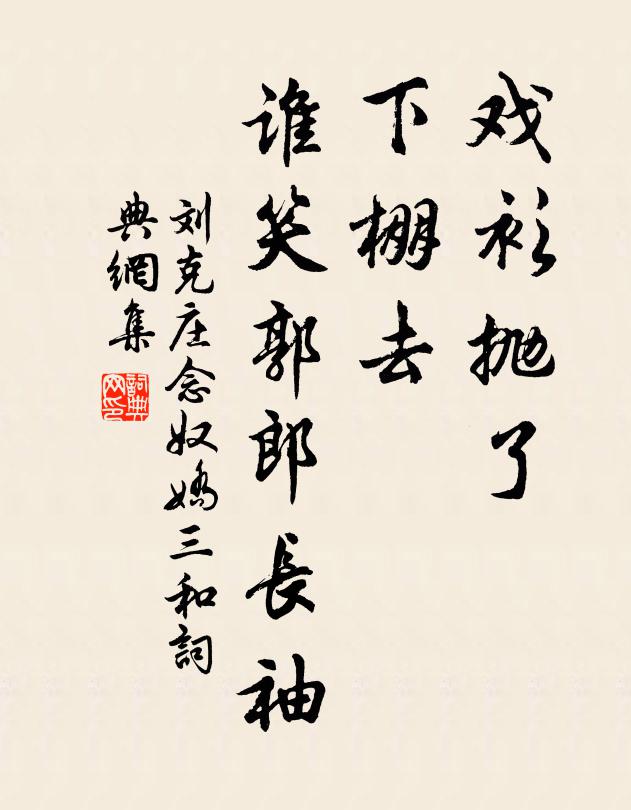 戏衫抛了
下棚去
谁笑郭郎長袖
刘克庄念奴嬌三和詞
典網集
詞典网印